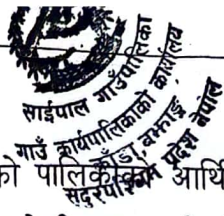 साईपाल गाउँपालिका
गाउँ कार्यपालिकाको कार्यालय
काँडा, बझाङ्ग
सदुरपश्चिम प्रदेश नेपाल
को पालिकाको आर्थि